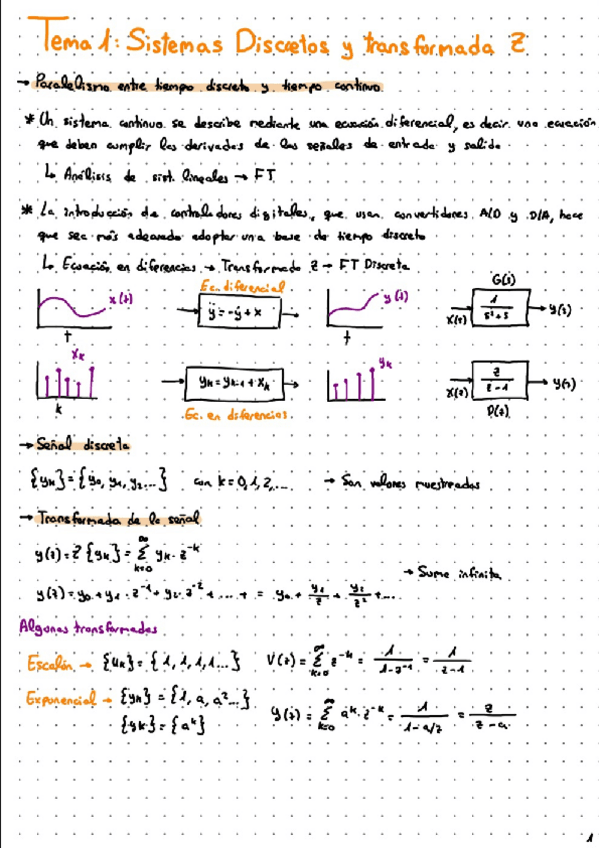 Tema 1: Sistemas Discretos y transformada Z
→ Paralelismo entre tiempo discreto y tiempo continuo.
* Un sistema continuo se describe mediante una ecuación diferencial, es decir una ecuación
que deben cumplir las derivadas de las señales de entrada y salida
↳ Análisis de sist. lineales → FT
* La introducción de controladores digitales, que usan convertidores A/D y D/A, hace
que sea más adecuado adoptar una base de tiempo discreto
↳ Ecuación en diferencias → Transformada Z → FT Discreta
Ec. diferencial G(s)
x(t) ÿ = -ẏ + x y(t) X(s) 1/(s²+s) y(s)
t t
Xk yk = yk-1 + xk yk X(z) z/(z-1) y(z)
k Ec. en diferencias. D(z)
→ Señal discreta
{yk} = {y0, y1, y2...} con k = 0, 1, 2, ... → Son valores muestreados
→ Transformada de la señal
y(z) = Z{yk} = ∑_{k=0}^{∞} yk · z^-k
→ Suma infinita
y(z) = y0 + y1 · z^-1 + y2 · z^-2 + ... + = y0 + y1/z + y2/z² + ...
Algunas transformadas
Escalón → {uk} = {1, 1, 1, 1...} V(z) = ∑_{k=0}^{∞} z^-k = 1/(1-z^-1) = 1/(z-1)
Exponencial → {yk} = {1, a, a²...}
{yk} = {a^k} y(z) = ∑_{k=0}^{∞} a^k · z^-k = 1/(1-a/z) = z/(z-a)
1